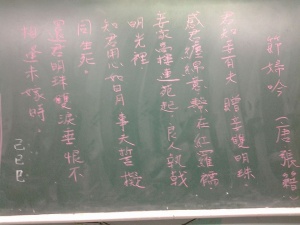 節婦吟 (唐 張籍)
君知妾有夫 贈妾雙明珠.
感君纏綿意 繫在紅羅襦
妾家高樓連苑起 良人執戟
明光裡.
知君用心如日月 事夫誓擬
同生死.
還君明珠雙淚垂 恨不
相逢未嫁時.